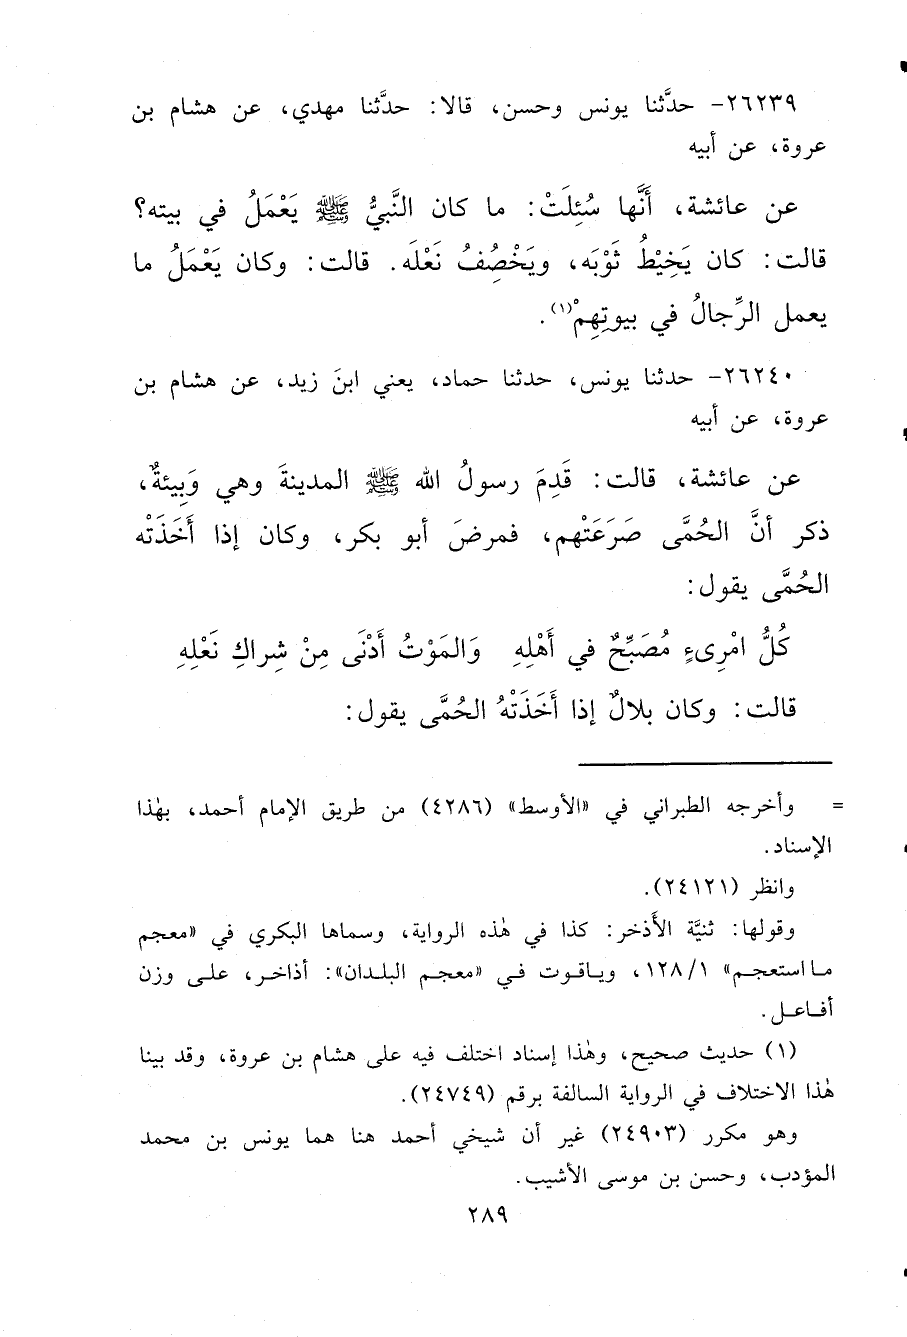 ٢٦٢٣٩- حدَّثنا يونس وحسن، قالا: حدَّثنا مهدي، عن هشام بن
عروة، عن أبيه
عن عائشة، أَنَّها سُئِلَتْ: ما كان النَّبيُّ ﷺ يَعْمَلُ في بيته؟
قالت: كان يَخِيْطُ ثَوْبَه، ويَخْصِفُ نَعْلَه. قالت: وكان يَعْمَلُ ما
يعمل الرِّجالُ في بيوتِهِمْ(١).
٢٦٢٤٠- حدثنا يونس، حدثنا حماد، يعني ابنَ زيد، عن هشام بن
عروة، عن أبيه
عن عائشة، قالت: قَدِمَ رسولُ الله ﷺ المدينةَ وهي وَبِيئةٌ،
ذكر أنَّ الحُمَّى صَرَعَتْهم، فمرضَ أبو بكر، وكان إذا أَخَذَتْه
الحُمَّى يقول:
كُلُّ امْرِىءٍ مُصَبِّحٌ في أَهْلِهِ وَالمَوْتُ أَدْنَى مِنْ شِراكِ نَعْلِهِ
قالت: وكان بلالٌ إذا أَخَذَتْهُ الحُمَّى يقول:
= وأخرجه الطبراني في «الأوسط» (٤٢٨٦) من طريق الإمام أحمد، بهٰذا
الإسناد.
وانظر (٢٤١٢١).
وقولها: ثنيَّة الأَذخر: كذا في هٰذه الرواية، وسماها البكري في «معجم
ما استعجم» ١٢٨/١، وياقوت في «معجم البلدان»: أذاخر، على وزن
أفاعل.
(١) حديث صحيح، وهٰذا إسناد اختلف فيه على هشام بن عروة، وقد بينا
هٰذا الاختلاف في الرواية السالفة برقم (٢٤٧٤٩).
وهو مكرر (٢٤٩٠٣) غير أن شيخي أحمد هنا هما يونس بن محمد
المؤدب، وحسن بن موسى الأشيب.
٢٨٩